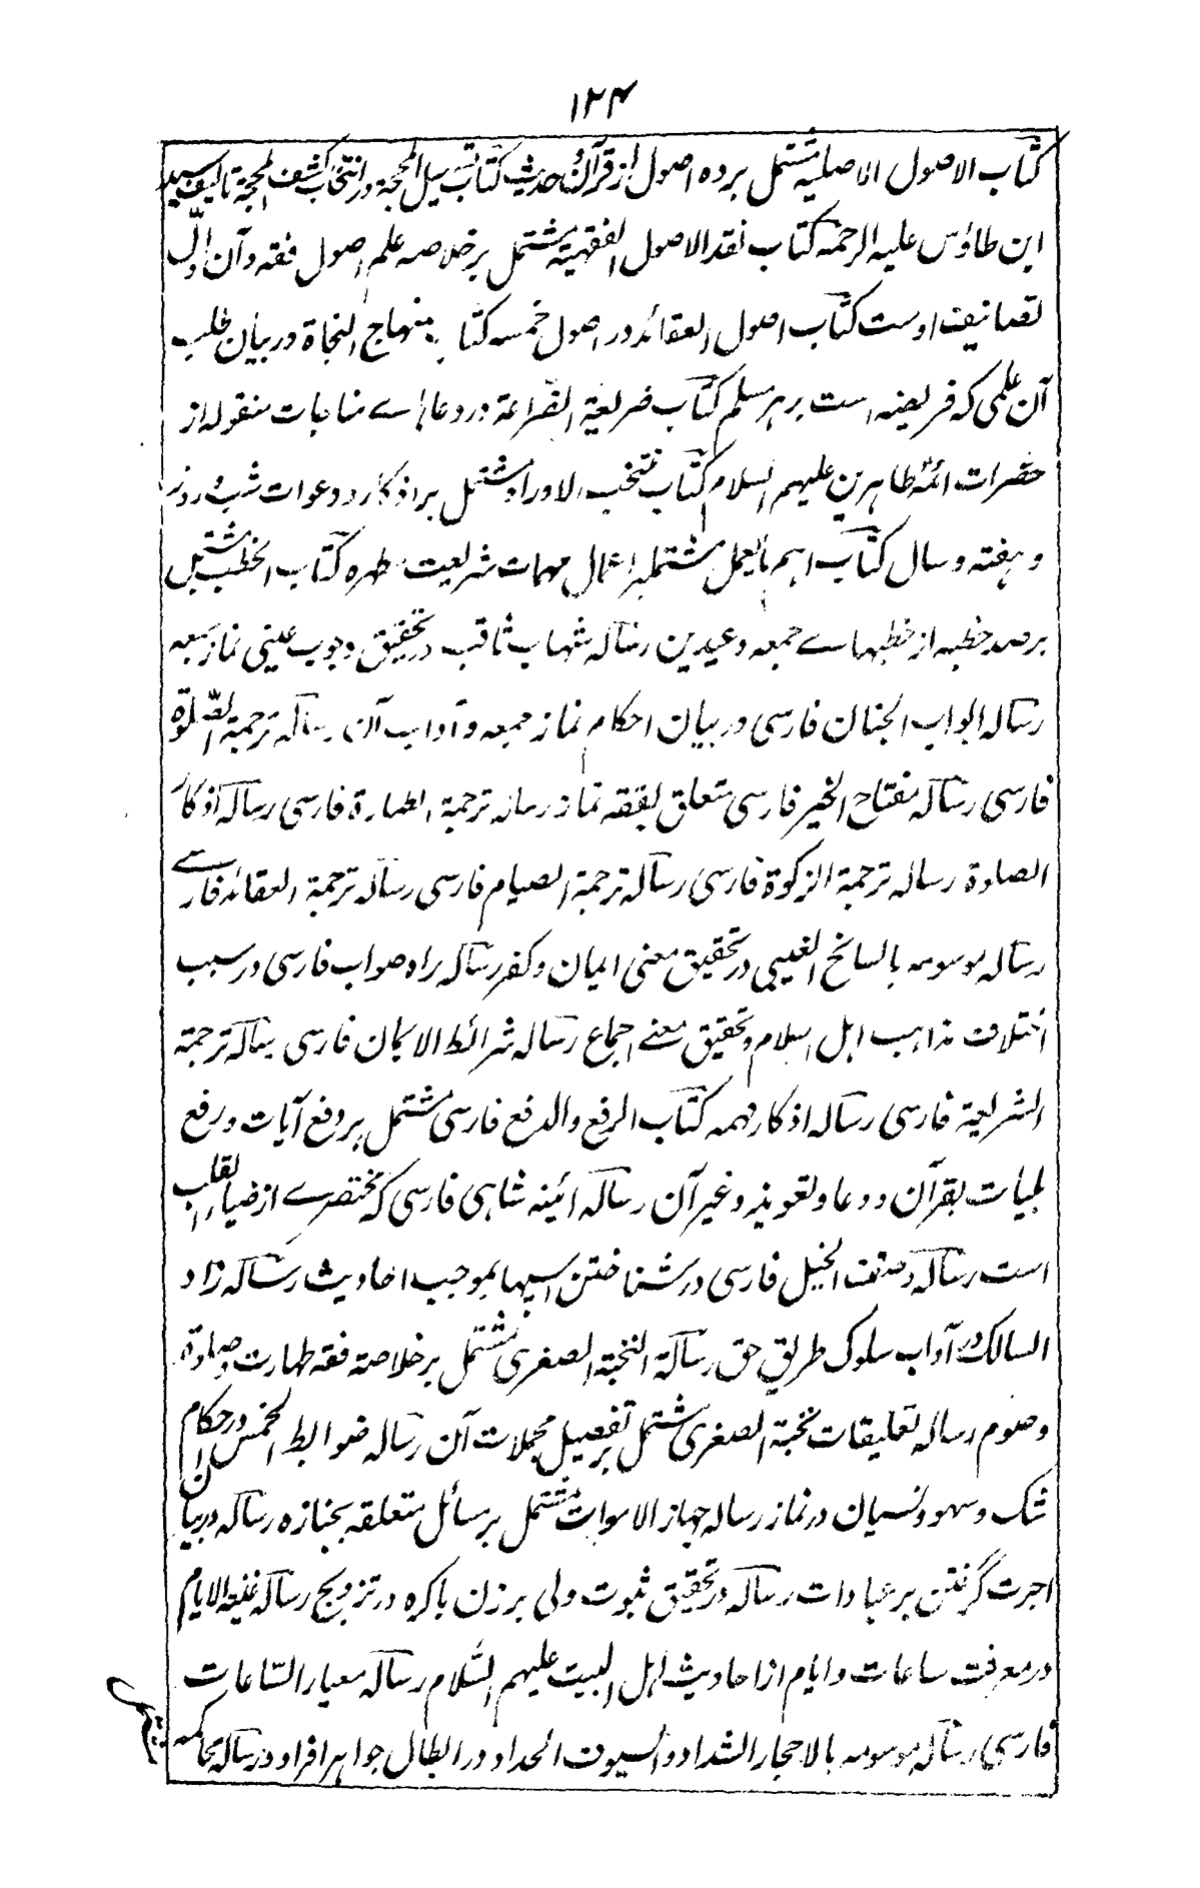 ۱۲۴
کتاب الاصول الاصلیه مشتمل برده اصول از قرآن و حدیث کتاب تسهیل المحجة در انتخاب کشف المحجة تالیف سید
ابن طاؤس علیه الرحمه کتاب نقد الاصول الفقهیة مشتمل بر خلاصه علم اصول فقه و آن اوّل
تصانیف اوست کتاب اصول العقائد در اصول خمسه کتاب منهاج النجاة در بیان طلب
آن علمی که فریضه است بر هر مسلم کتاب ضریعة الضراعة در دعا ہاے مناجات منقوله از
حضرات ائمهٔ طاهرین علیهم السلام کتاب منتخب الاوراد مشتمل بر اذکار و دعوات شب و روز
و هفته و سال کتاب اهم ما یعمل مشتملبر اعمال مهمات شریعت مطهره کتاب الخطب مشتمل
بر صد خطبه از خطبهاے جمعه و عیدین رساله شهاب ثاقب در تحقیق وجوب عینی نماز جمعه
رساله ابواب الجنان فارسی در بیان احکام نماز جمعه و آداب آن رساله ترجمة الصّلوٰة
فارسی رساله مفتاح الخیر فارسی متعلق بفقه نماز رساله ترجمة الطهارة فارسی رساله اذکار
الصلوة رساله ترجمة الزکوة فارسی رساله ترجمة الصیام فارسی رساله ترجمة العقائد فارسے
رساله موسومه بالسانح الغیبی در تحقیق معنی ایمان و کفر رساله راه صواب فارسی در سبب
اختلاف مذاهب اهل اسلام و تحقیق معنے اجماع رساله شرائط الایمان فارسی رساله ترجمة
الشریعة فارسی رساله اذکار مهمه کتاب الرفع والدفع فارسی مشتمل بر دفع آیات و رفع
بلیات بقرآن و دعا و تعویذ و غیر آن رساله ائینه شاهی فارسی که مختصرے از ضیاء القلب
است رساله وصف الخیل فارسی در شناختن اسپها بموجب احادیث رساله زاد
السالک در آداب سلوک طریق حق رسالة النخبة الصغری مشتمل بر خلاصه فقه طهارت و صلوة
و صوم رساله تعلیقات نخبة الصغری مشتمل بر تفصیل مجملات آن رساله ضوابط الخمس در احکام
شک و سهو و نسیان در نماز رساله جهاز الاموات مشتمل بر مسائل متعلقه بجنازه رساله در بیان
اجرت گرفتن بر عبادات رساله در تحقیق ثبوت ولی بر زن باکره در تزویج رساله غنیة الایام
در معرفت ساعات و ایام از احادیث اهل البیت علیهم السّلام رساله معیار السّاعات
فارسی رساله موسومه بالاحجار الشداد والسیوف الحداد در ابطال جواهر افراد و رساله محاکمه